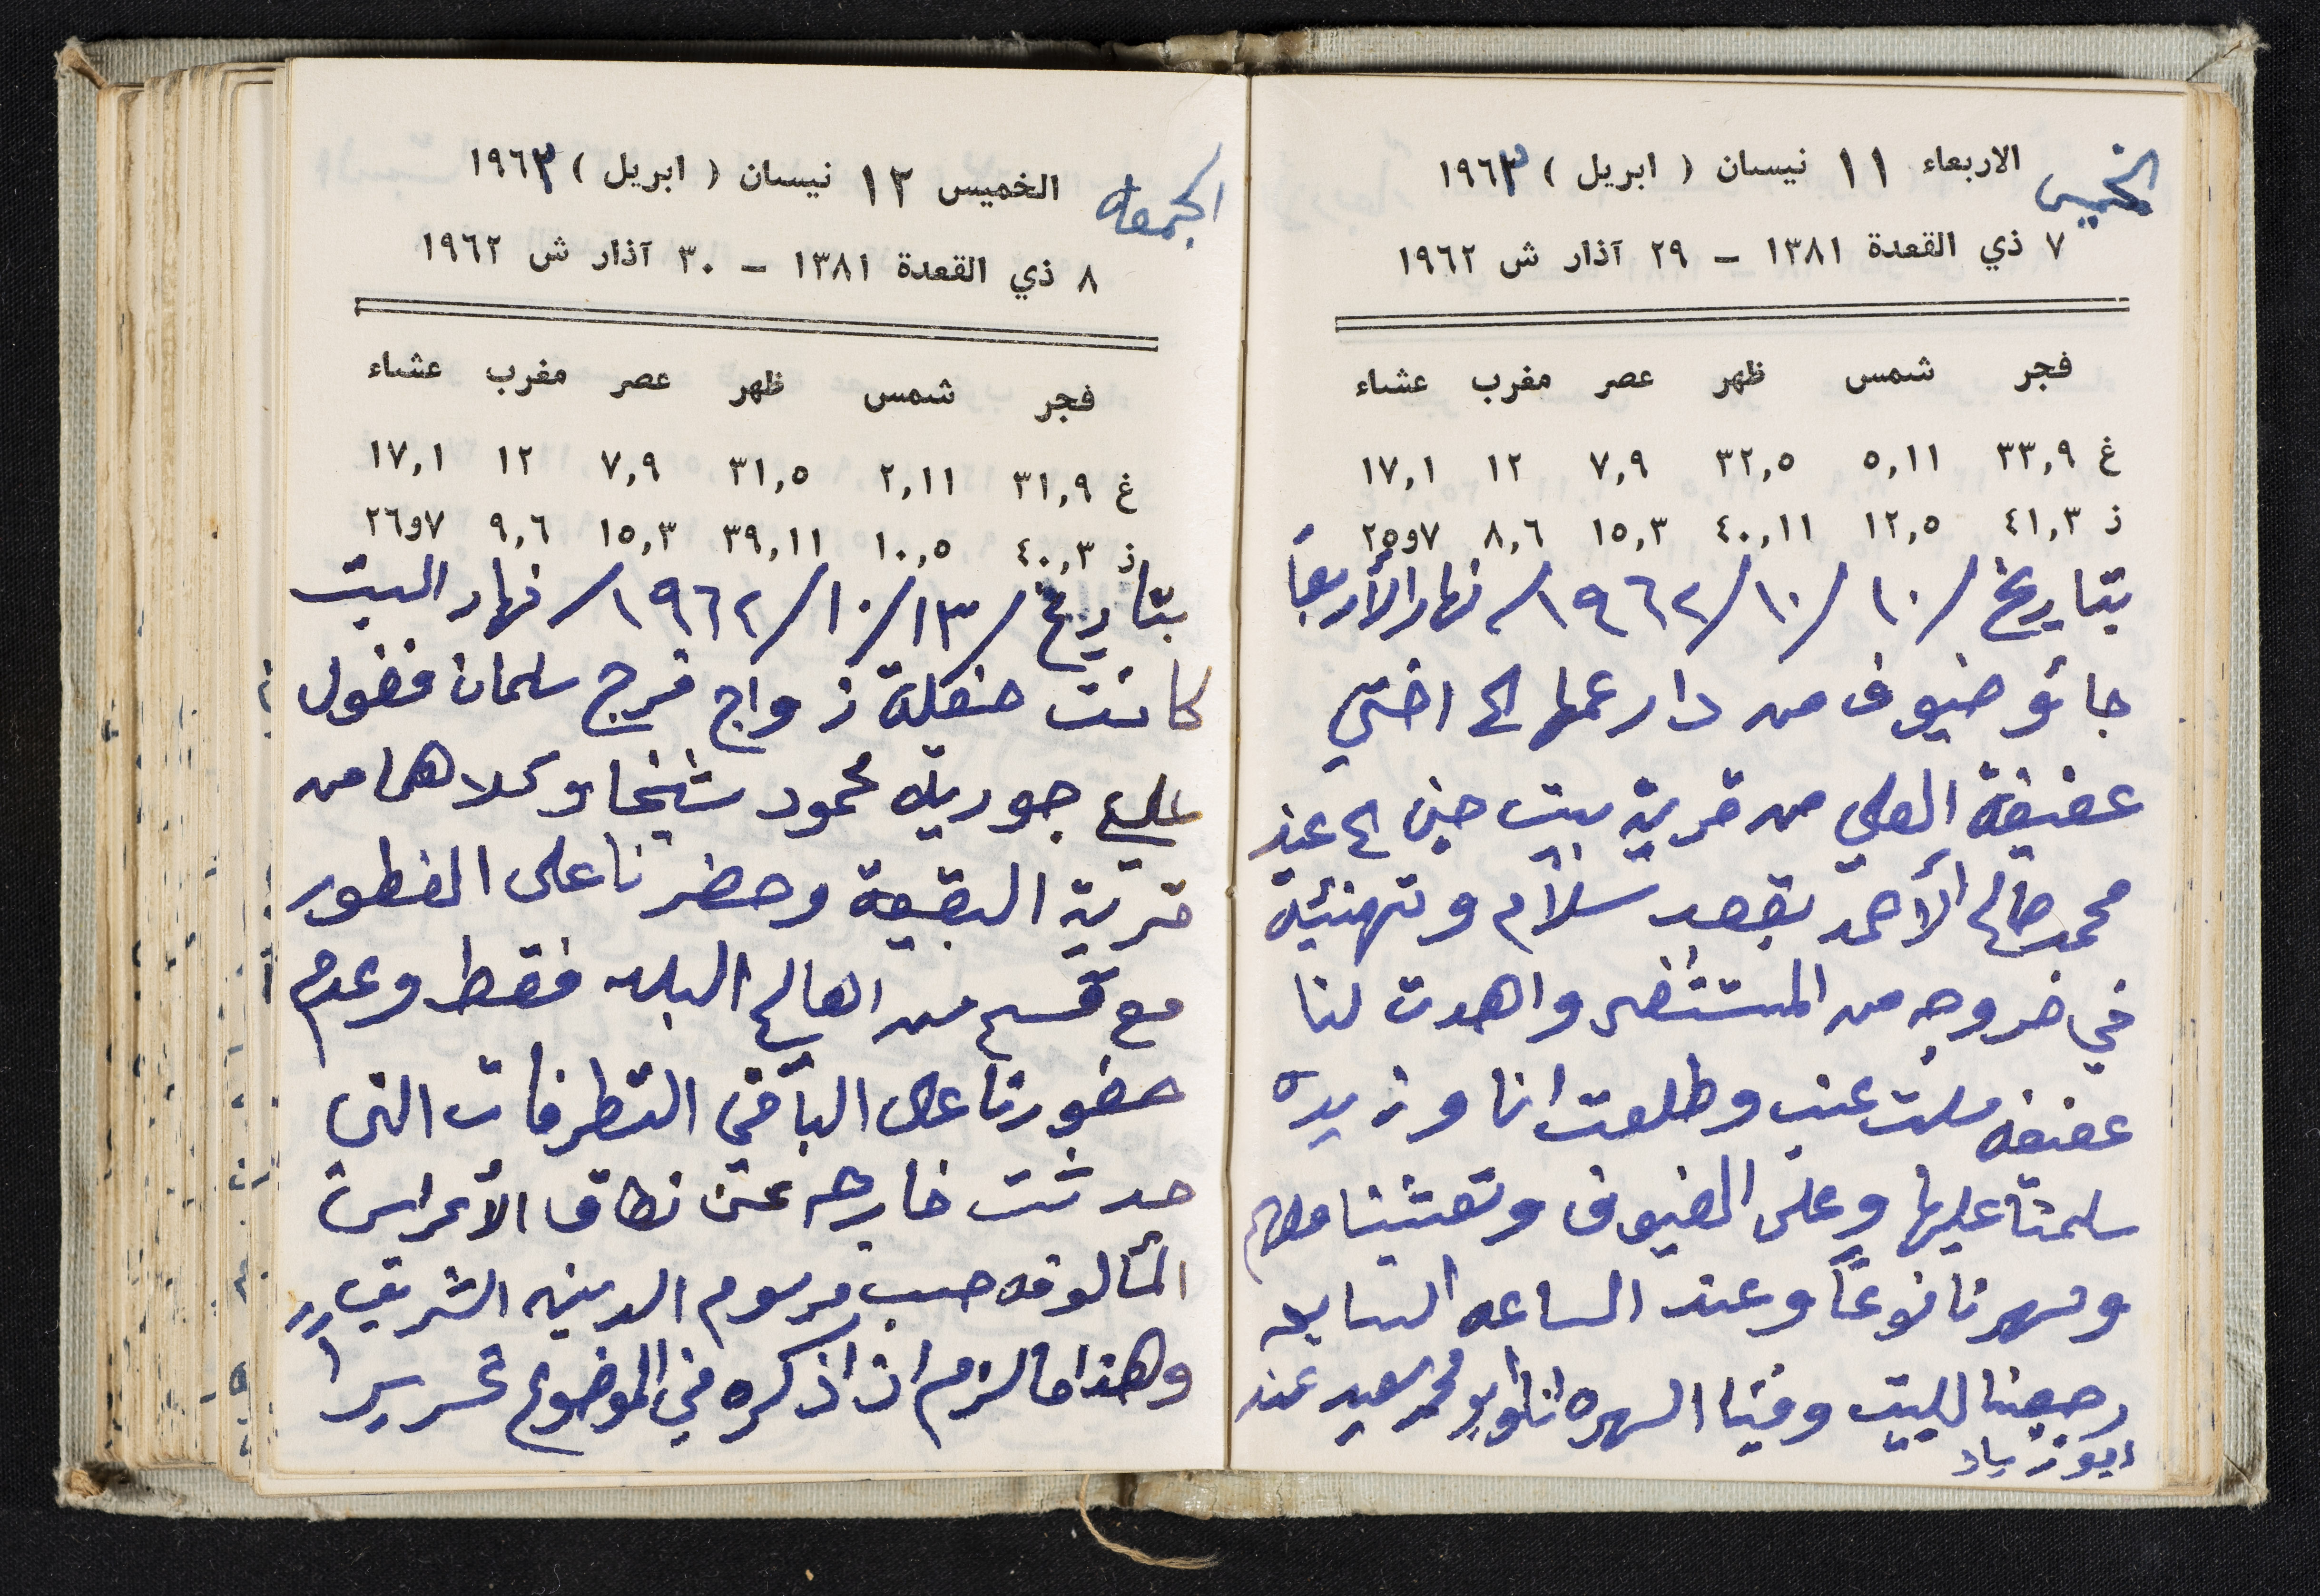 الخميس
الاربعاء ١١ نيسان ( ابريل ) ١٩٦٣
٧ ذي القعدة ١٣٨١ – ٢٩ آذار ش ١٩٦٢
فجر شمس ظهر عصر مغرب عشاء
غ ٣٣,٩ ٥,١١ ٣٢,٥ ٧,٩ ١٢ ١٧,١
ز ٤١,٣ ١٢,٥ ٤٠,١١ ١٥,٣ ٨,٦ ٧و٢٥
بتاريخ /١٠/١٠/١٩٦٢/ نهار الأربعاً
جائو ضيوف من دار عمها الى اختي
عفيفة العلي من قرية بيت جن الى عند
محمد صالح الأحمد بقصد سلام وتهنئيه
في خروجه من المستشفى واهدت لنا
عفيفه سلت عنب وطلعت انا وزيده
سلمنا عليها وعلى الضيوف وتعشينا معهم
وسهرنا نوعاً وعند الساعه السابعه
رجعنا للبيت وفتنا السهره انا وابو محمد سعيد عند
ابو زياد
الجمعه
الخميس ١٢ نيسان ( ابريل ) ١٩٦٣
٨ ذي القعدة ١٣٨١ – ٣٠ آذار ش ١٩٦٢
فجر شمس ظهر عصر مغرب عشاء
غ ٣١,٩ ٢,١١ ٣١,٥ ٧,٩ ١٢ ١٧,١
ز ٤٠,٣ ١٠,٥ ٣٩,١١ ١٥,٣ ٩,٦ ٧و٢٦
بتاريخ /١٣/١٠/١٩٦٢/ نهار السبت
كانت حفلة زواج فرج سلمان فضول
على جوريه محمود شيخا وكلاهما من
قرية البقيعة وحضرنا على الفطور
مع قسم من اهالي البلد فقط وعدم
حضورنا على الباقي التطرفات التي
حدثت خارجه عن نطاق الأعراس
المألوفه حسب مرسوم الدينيه الشريف
وهذا ما لزم ان اذكره في الموضوع تحريراً